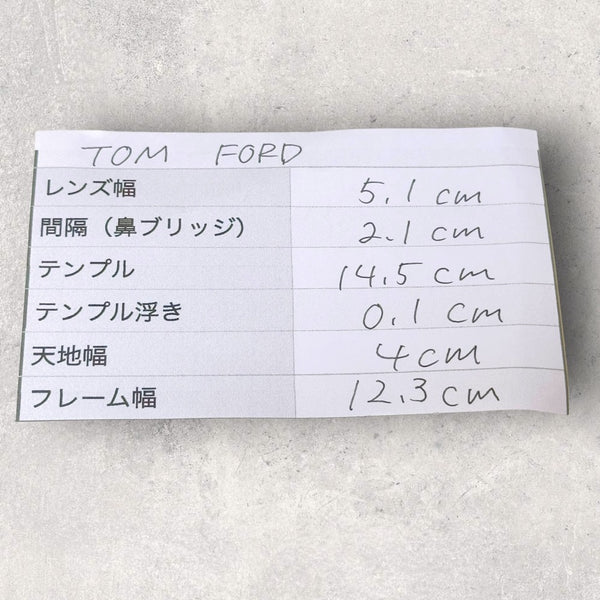 TOM FORD
レンズ幅 5.1 cm
間隔（鼻ブリッジ） 2.1 cm
テンプル 14.5 cm
テンプル浮き 0.1 cm
天地幅 4 cm
フレーム幅 12.3 cm